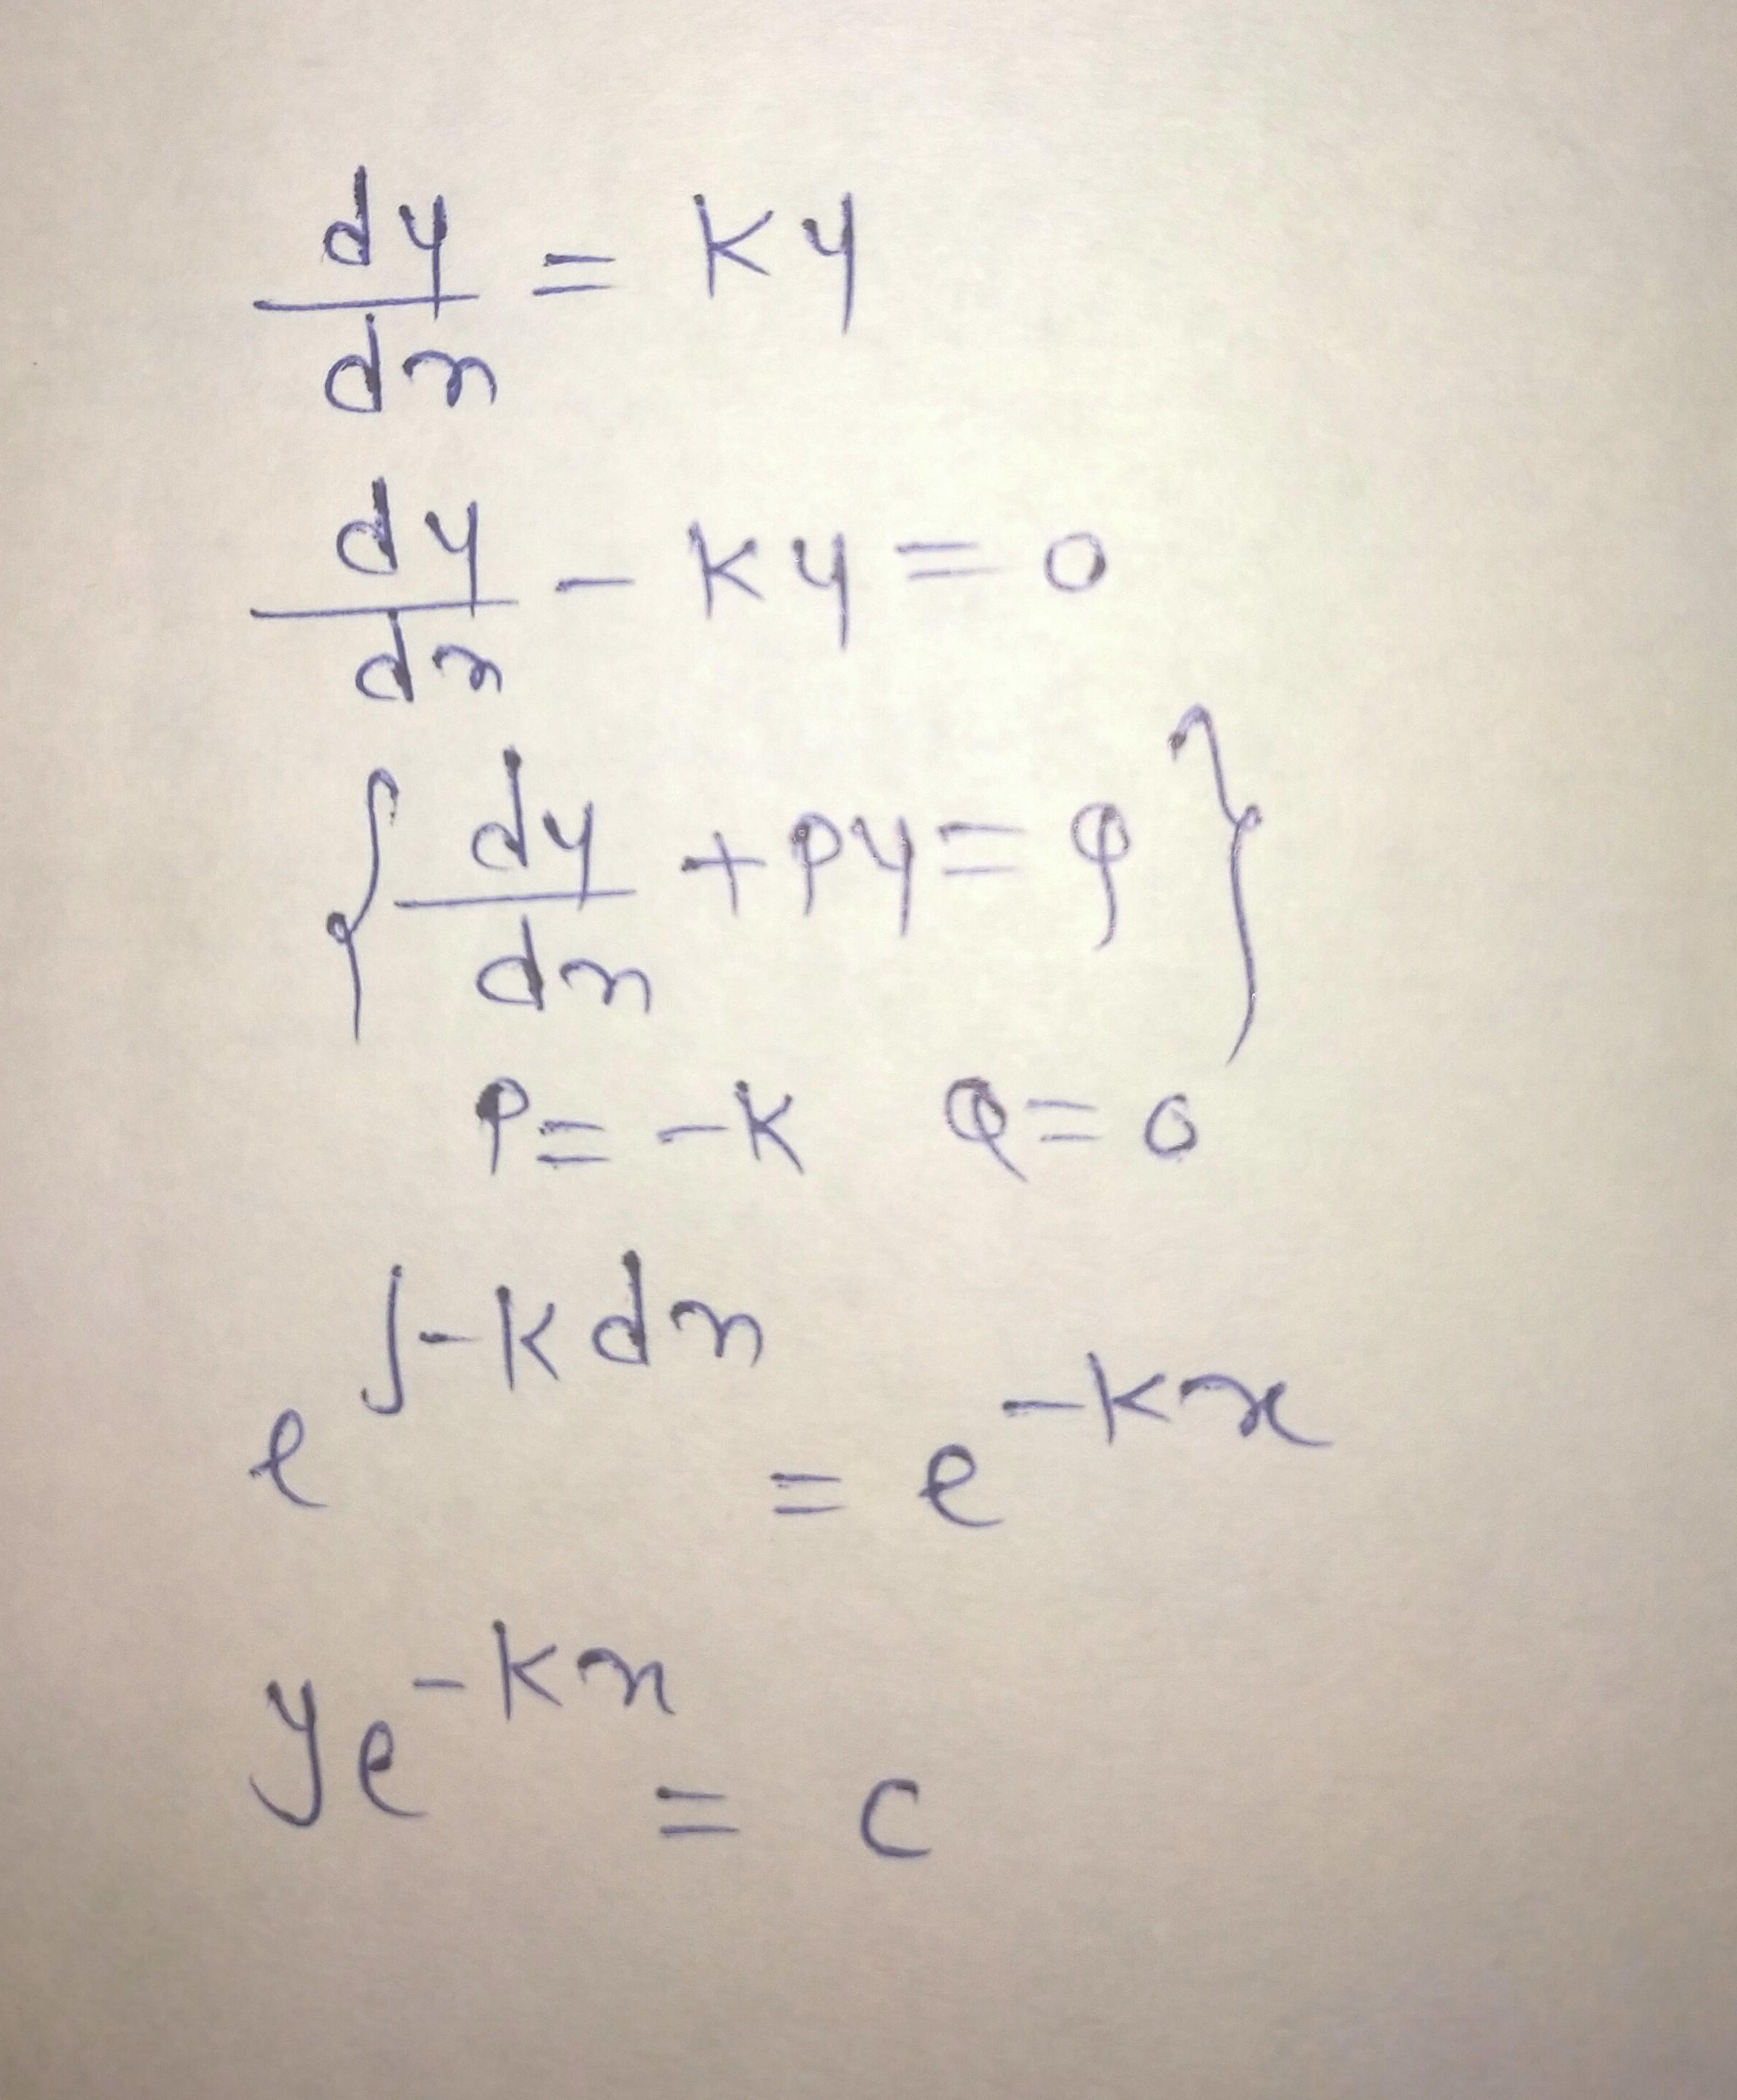 dy/dx = Ky
dy/dx - Ky = 0
{ dy/dx + Py = Q }
P = -K Q = 0
e^∫-K dx = e^-Kx
ye^-Kx = c